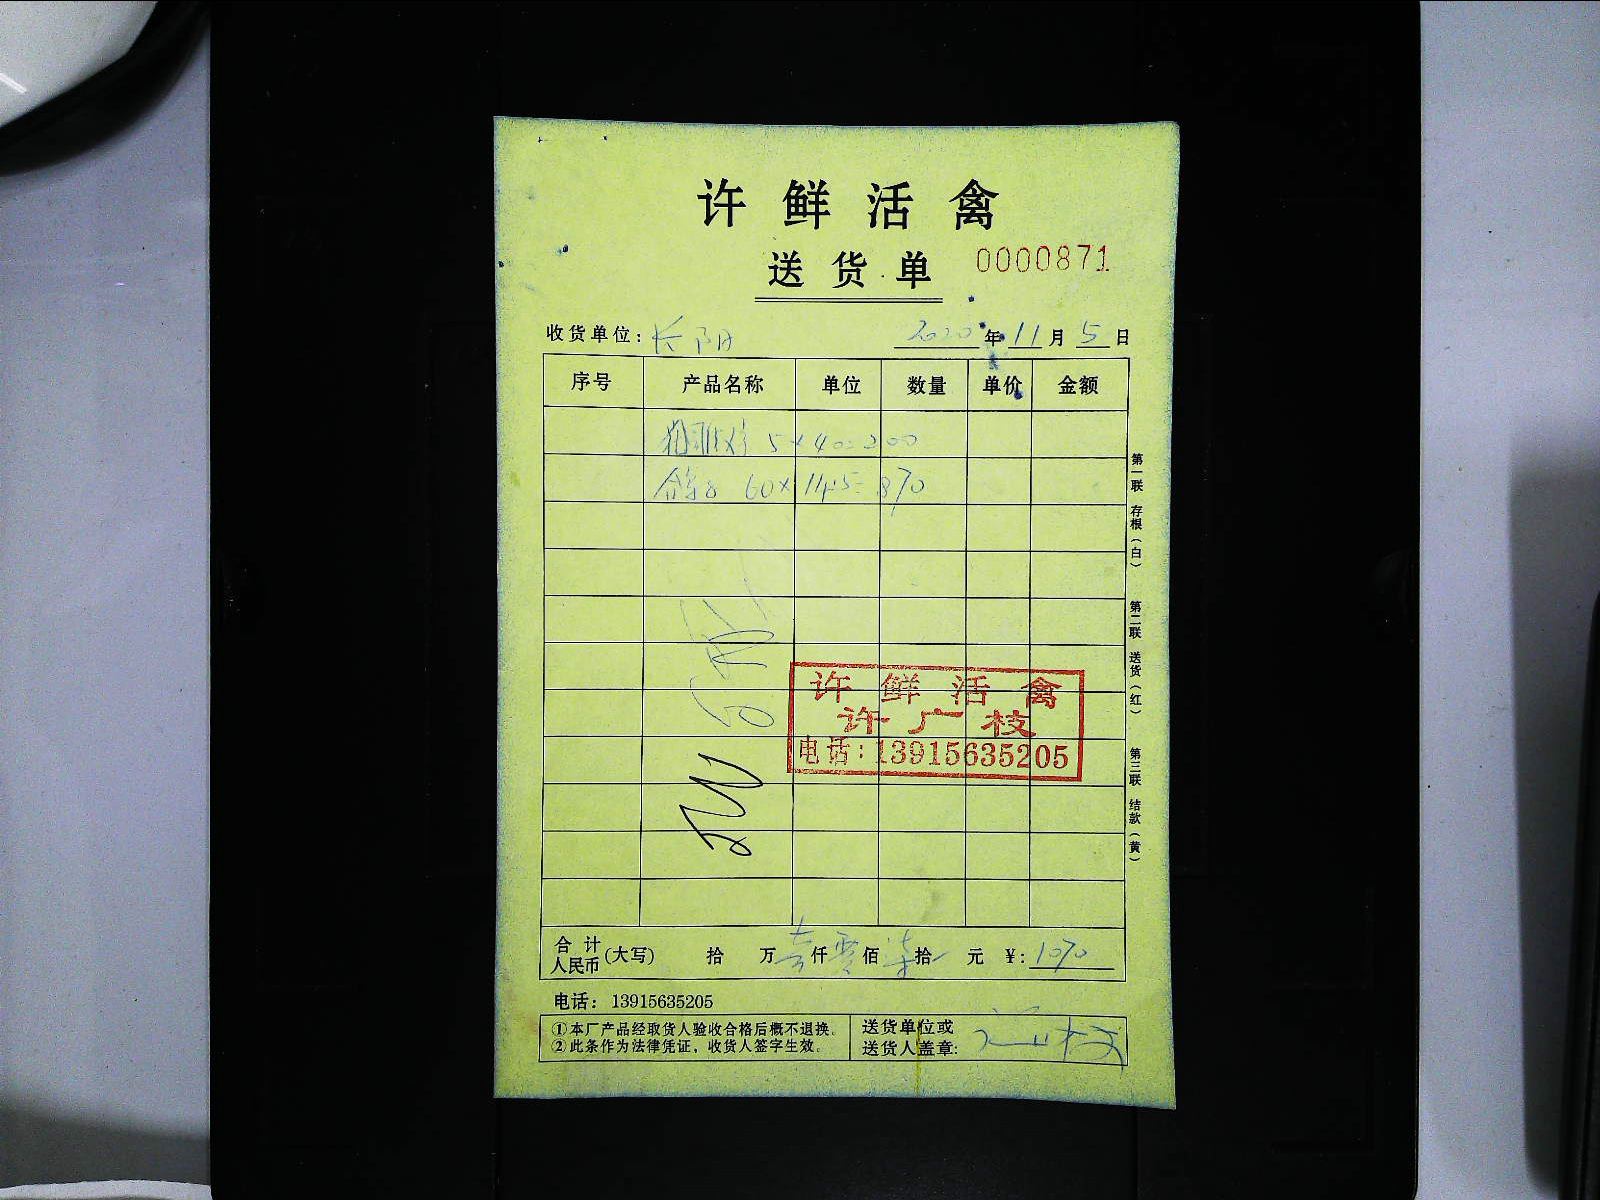 许鲜活禽
送货单 0000871
收货单位: 长阳 2020年11月5日
序号 产品名称 单位 数量 单价 金额
5×40=200
60×14.5=870
许鲜活禽
许广枝
电话:13915635205
合计人民币(大写) 拾 万壹仟零佰柒拾 元 ¥:1070
电话: 13915635205
①本厂产品经取货人验收合格后概不退换。
②此条作为法律凭证，收货人签字生效。
送货单位或
送货人盖章: 许广枝
第一联 存根(白) 第二联 送货(红) 第三联 结款(黄)